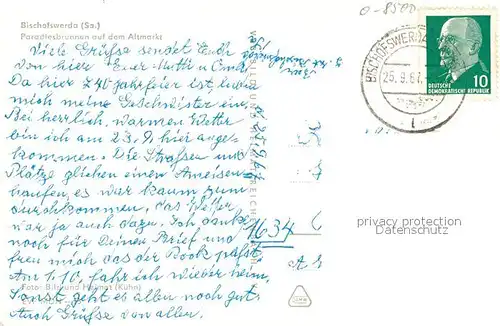 Bischofswerda (Sa.)
Paradiesbrunnen auf dem Altmarkt
Viele Grüße sendet Euch
von hier Eure Mutti u.
Da hier 740 jahrfeier ist, lud
mich meine Geschwister ein.
Bei herrlich, warmen Wetter
bin ich am 23.9. hier ange-
kommen. Die Straßen und
Plätze glichen einen Ameisen
haufen, es war kaum zum
durchkommen, das Wetter
war ja auch dazu. Ich danke
noch für Deinen Brief und
freu mich das der Rock paßt.
Am 1.10. fahr ich wieder heim.
Sonst geht es allen noch gut.
Auch Grüße von allen.
Foto: Bild und Heimat (Kühn)
25.9.67
1634
BISCHOFSWERDA
25.9.67
DEUTSCHE
DEMOKRATISCHE REPUBLIK
10
privacy protection
Datenschutz